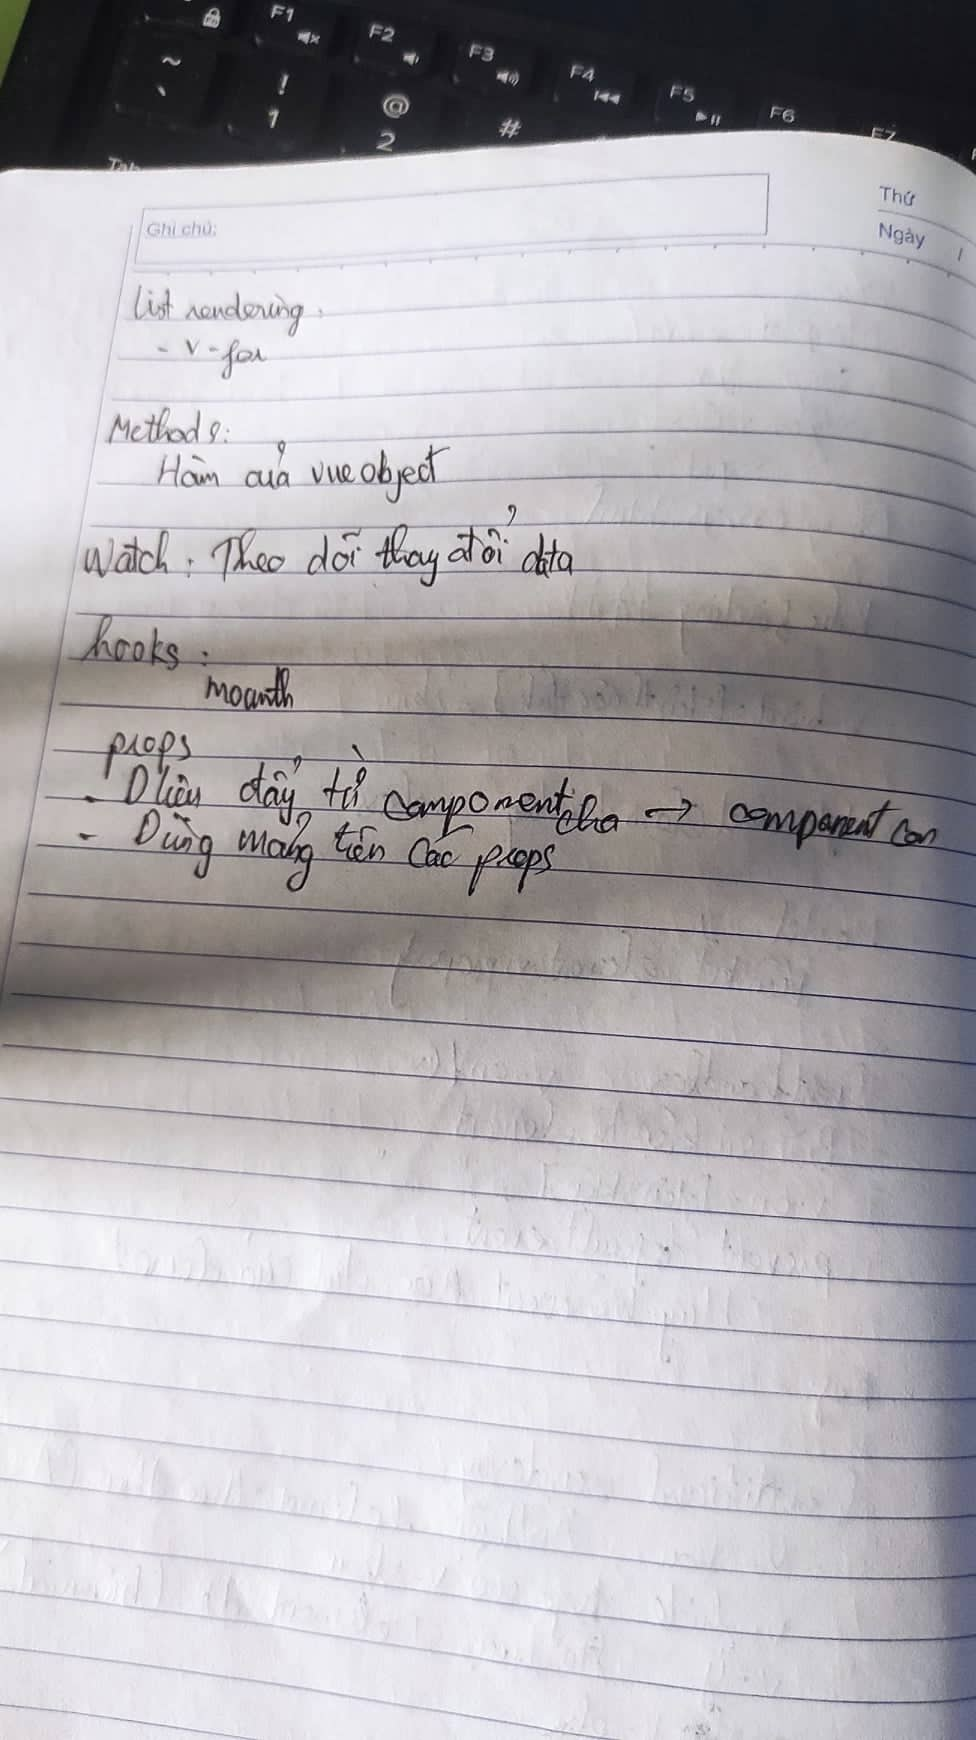 F1
F2
F3
F4
F5
F6
F7
~
!
@
#
`
1
2
Tab
Ghi chú:
Thứ
Ngày /
List rendering:
- v-for
Methods:
Hàm của vue object
Watch: Theo dõi thay đổi data
hooks:
props
- Dliệu đẩy từ component cha → component con
- Dùng mảng tên các props